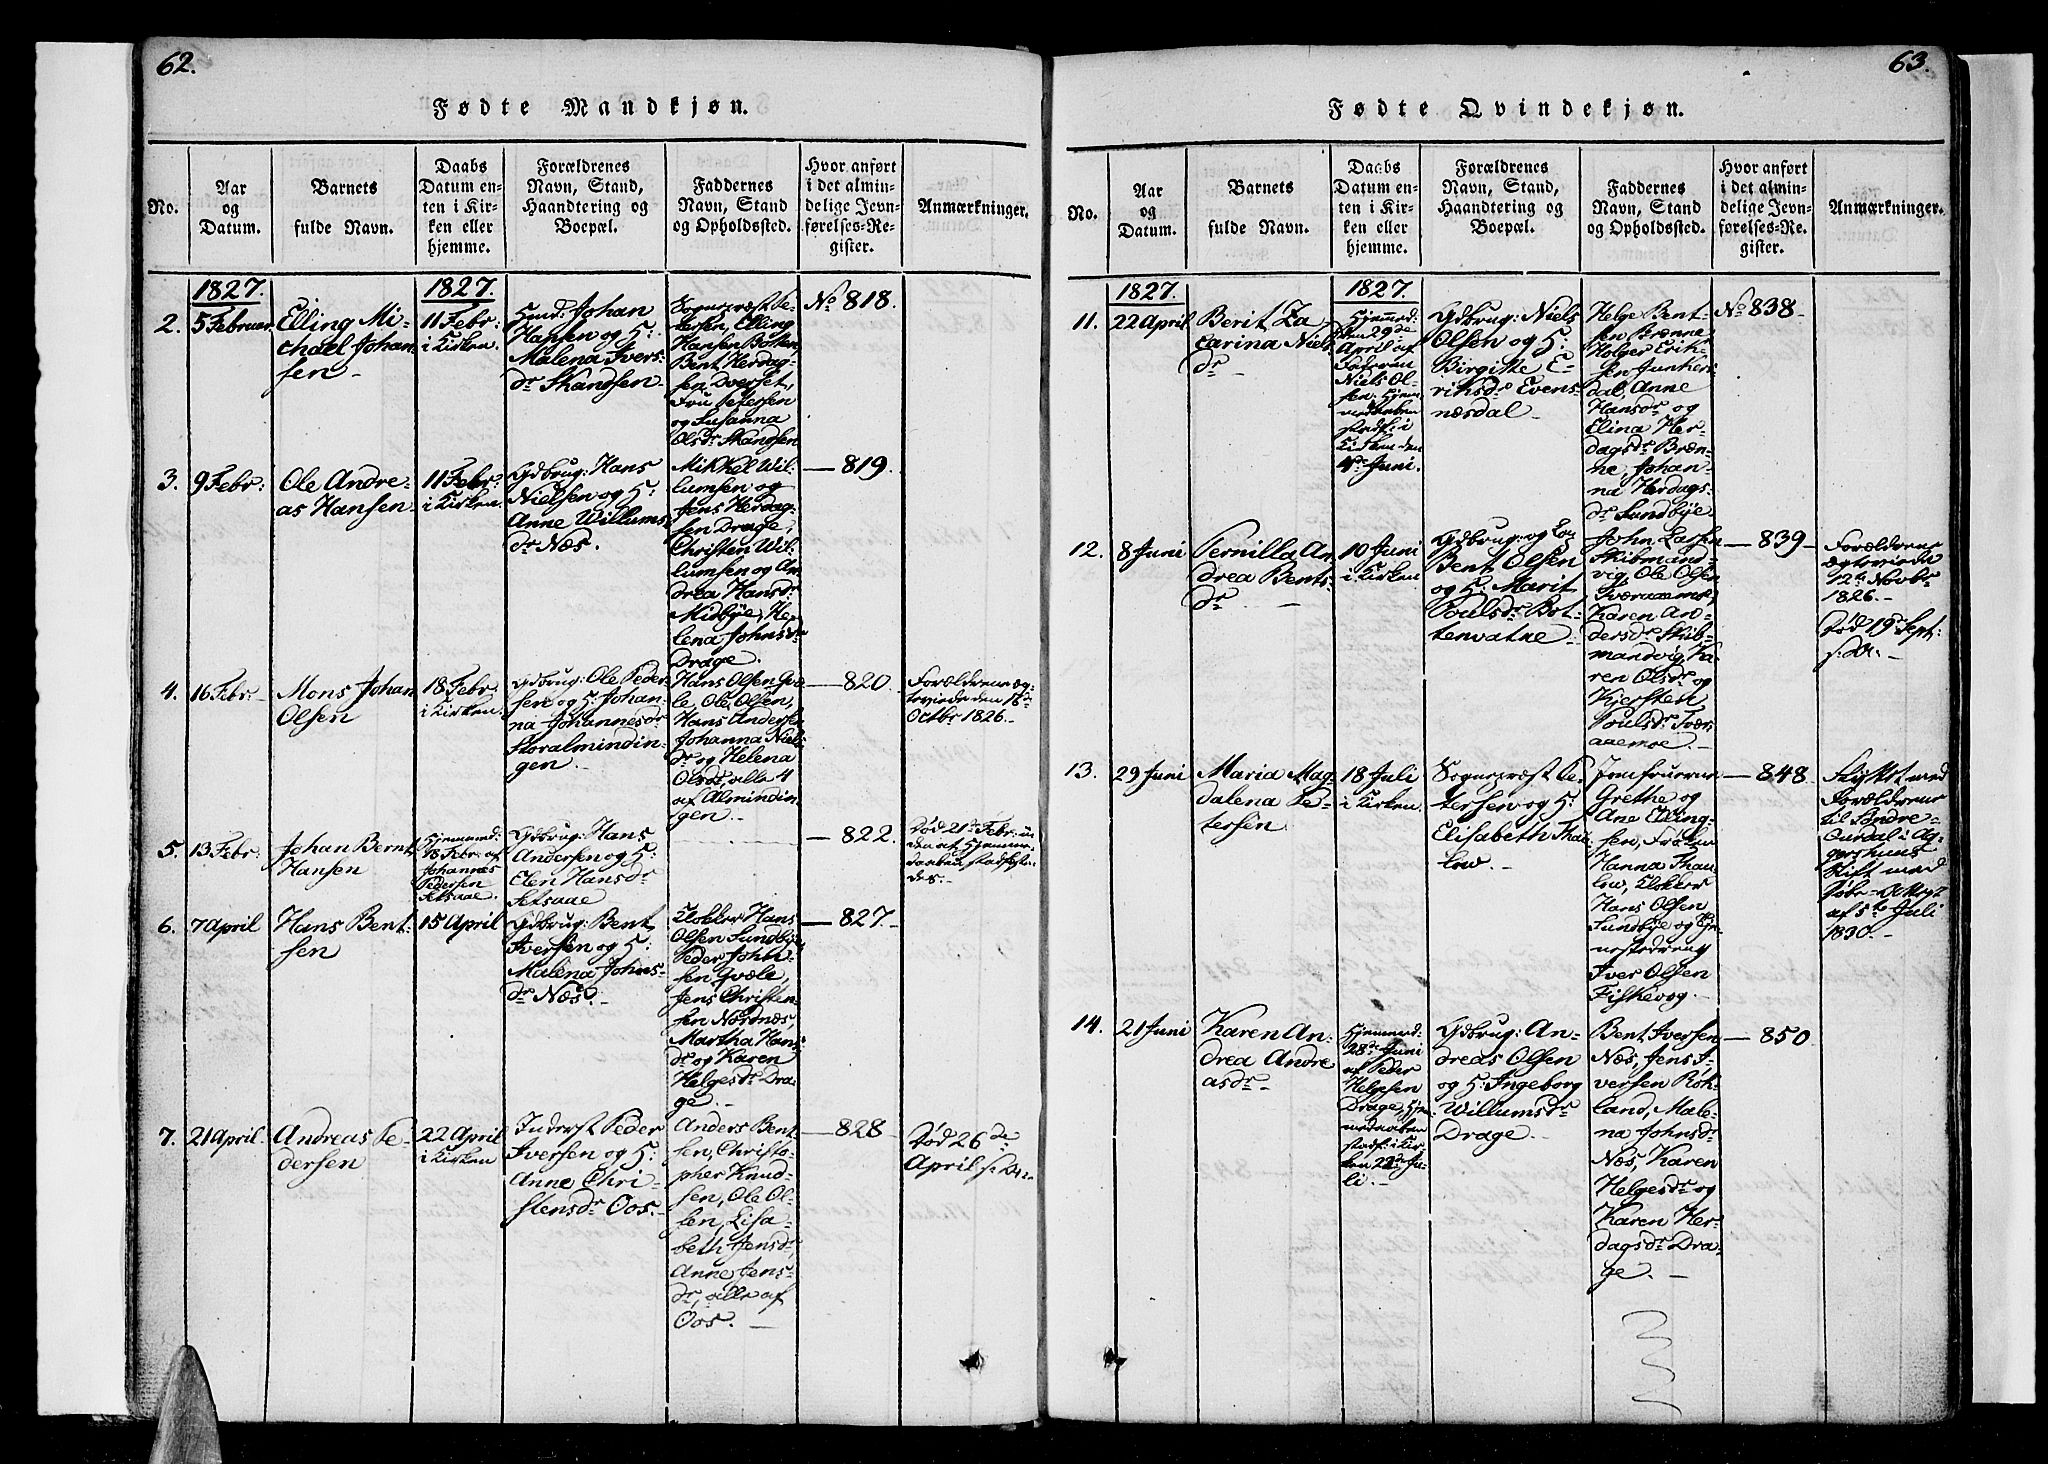 62.
Fødte Mandkjøn.
No.
Aar
og
Datum.
Barnets
fulde Navn.
Daabs
Datum en-
ten i Kir-
ken eller
hjemme.
Forældrenes
Navn, Stand,
Haandtering og
Boepæl.
Faddernes
Navn, Stand
og Opholdssted.
Hvor anført
i det almin-
delige Jevn-
førelses-Re-
gister.
Anmærkninger.
1827.
1827.
2.
5 Februar
Elling Mi-
chael Johan-
sen
11 Febr:
i Kirken.
Huusm: Johan
Hansen og H:
Malena Ivers-
dr Skandsen.
Sognepræst Pe-
tersen, Elling
Hansen
Bent Herdag-
sen Dverset,
Fru Petersen
og Susanna
Olsdr Skandsen
No 818.
3.
9 Febr:
Ole Andre-
as Hansen
11 Febr:
i Kirken.
Gdbrug: Hans
Nielsen og H:
Anne Willums
dr Næs.
Mikkel Wil-
lumsen og
Jens Herdag-
sen Drage,
Christen Wil-
lumsen og An-
drea Hansdr
Midbye, He-
lena Johnsdr
Drage.
— 819.
4.
16 Febr:
Mons Johan
Olsen
18 Febr:
i Kirken.
Gdbrug: Ole Peder-
sen og H: Johan-
na Johannesdr
Storalmindin-
gen.
Hans Olsen Qvæ-
le, Ole Olsen,
Hans Andersen
Johanna Niels
dr og Helena
Olsdr, alle 4
af Almindin-
gen.
— 820.
Forældrene æg-
teviede den 16de
Octbr 1826.
5.
13 Febr:
Johan Bernt
Hansen
Hjemmed:
18 Febr: af
Johannes
Pedersen
Setsaae.
Gdbrug: Hans
Andersen og H:
Elen Hansdr
Setsaae
— 822.
Død 21de Febr: in
den af Hjemme-
daaben stadfæste-
des.
6.
7 April
Hans Bent-
sen
15 April
Gdbrug: Bent
Iversen og H:
Malena Johns-
dr Næs.
Klokker Hans
Olsen Sundbye,
Peder Johan-
sen Qvæle,
Jens Christen-
sen Nordnæs,
Martha Hans
dr og Karen
Helgesdr Dra-
ge.
— 827.
7.
21 April
Andreas Pe-
dersen
22 April
i Kirken
Inderst Peder
Iversen og H:
Anne Chri-
stensdr Oos.
Anders Bent
sen, Christo-
pher Knud-
sen, Ole Ol-
sen, Lisa-
beth Jensdr,
Anne Jens-
dr, alle af
Oos.
— 828
Død 26de
April s: A:
63.
Fødte Qvindekjøn.
No.
Aar
og
Datum.
Barnets
fulde Navn.
Daabs
Datum en-
ten i Kir-
ken eller
hjemme.
Forældrenes
Navn, Stand,
Haandtering og
Boepæl.
Faddernes
Navn, Stand
og Opholdssted.
Hvor anført
i det almin-
delige Jevn-
førelses-Re-
gister.
Anmærkninger.
1827.
1827.
11.
22 April
Berit Za-
carina Niels
dr
Hjemmed:
den 29de
April af
Faderen
Niels Ol-
sen. Hjem-
medaaben
stadf: i
Kirken den
4de Juni.
Gdbrug: Niels
Olsen og H:
Birgitte E-
riksdr Evens-
næsdal
Helge Bent-
sen Brænne
Holger Erik-
sen Junkers-
dal, Anne
Hansdr og
Elina Her-
dagsdr Bræn-
ne, Johan-
na Herdags-
dr Sundbye
No 838
12.
8 Juni
Pernilla An-
drea Bents-
dr
10 Juni
i Kirken
Gdbrug: og
Bent Olsen
og H: Marit
Poulsdr Bot-
tenvatne
John Larsen
Skibmand-
vig, Ole Olsen
Tværaaemoe,
Karen An-
dersdr Skib-
mandvig, Ka-
ren Olsdr og
Kjersten
Poulsdr Tvær-
aaemoe.
— 839
Forældrene
ægteviede
12te Novbr
1826.
Død 19de Sept:
s: A:
13.
29 Juni
Maria Mag-
dalena Pe-
tersen
18 Juli
i Kirken
Sognepræst Pe-
tersen og H:
Elisabeth Thau-
low.
Jomfruerne
Grethe og
Ane Elling-
sen, Frøken
Hanna Thau-
low, Klokker
Hans Olsen
Sundbye og Tje-
nestedreng
Iver Olsen
Fiskevog.
— 848.
Flyttet med
Forældrene
til Søndre-
Aurdal i Ag-
gershuus
Stift med
Døbe-Attest
af 5te Juli
1830.
14.
21 Juni
Karen An-
drea Andre
asdr
Hjemmed:
28de Juni
af Peder
Helgesen
Drage, Hjem-
medaaben
stadf: i Kir-
ken 22de Ju-
li.
Gdbrug: An-
dreas Olsen
og H: Ingeborg
Willumsdr
Drage.
Bent Iversen
Næs, Jens I-
versen Røk-
land, Male-
na Johnsdr
Næs, Karen
Helgesdr og
Karen Her-
dagsdr Dra-
ge.
— 850.